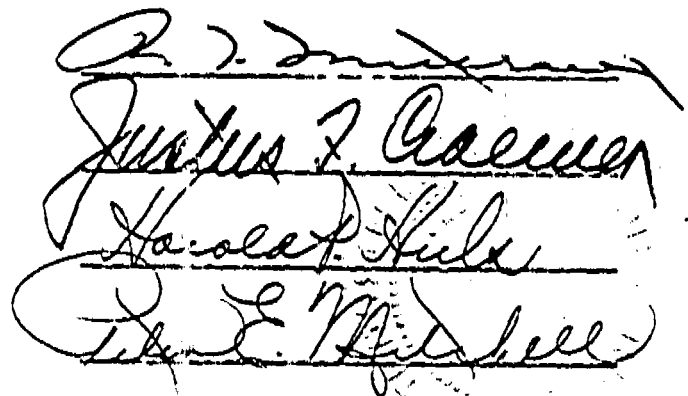 Justus F. Craemer
Harold P. Huls
Peter E. Mitchell